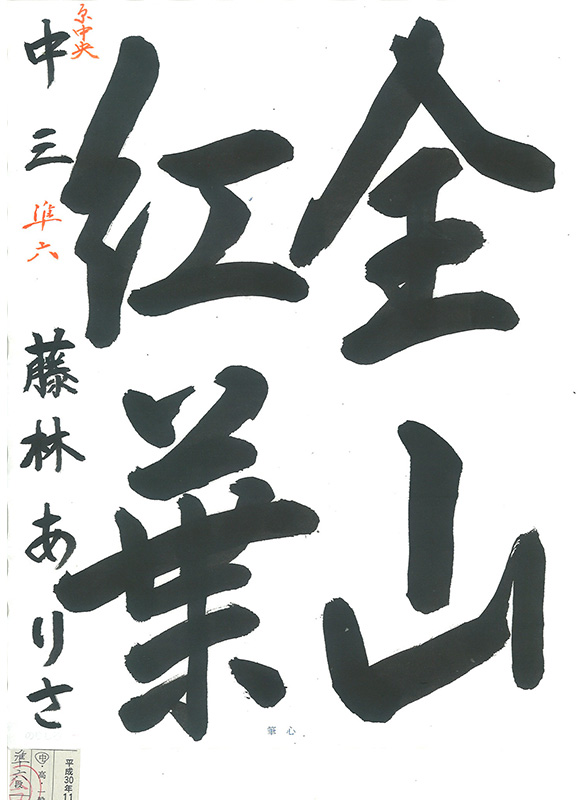 全山
紅葉
原中央
中三 準六 藤林ありさ
心筆
平成30年11
中・高・一般
準六段